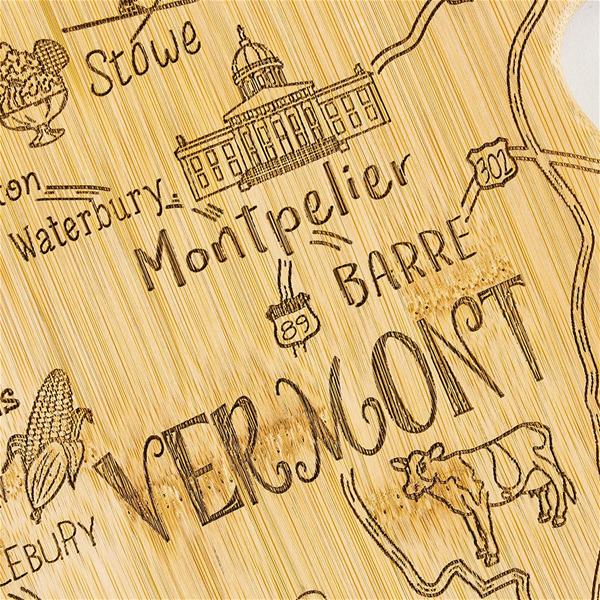 Stowe
ton
Waterbury
Montpelier
302
BARRE
89
VERMONT
s
LEBURY